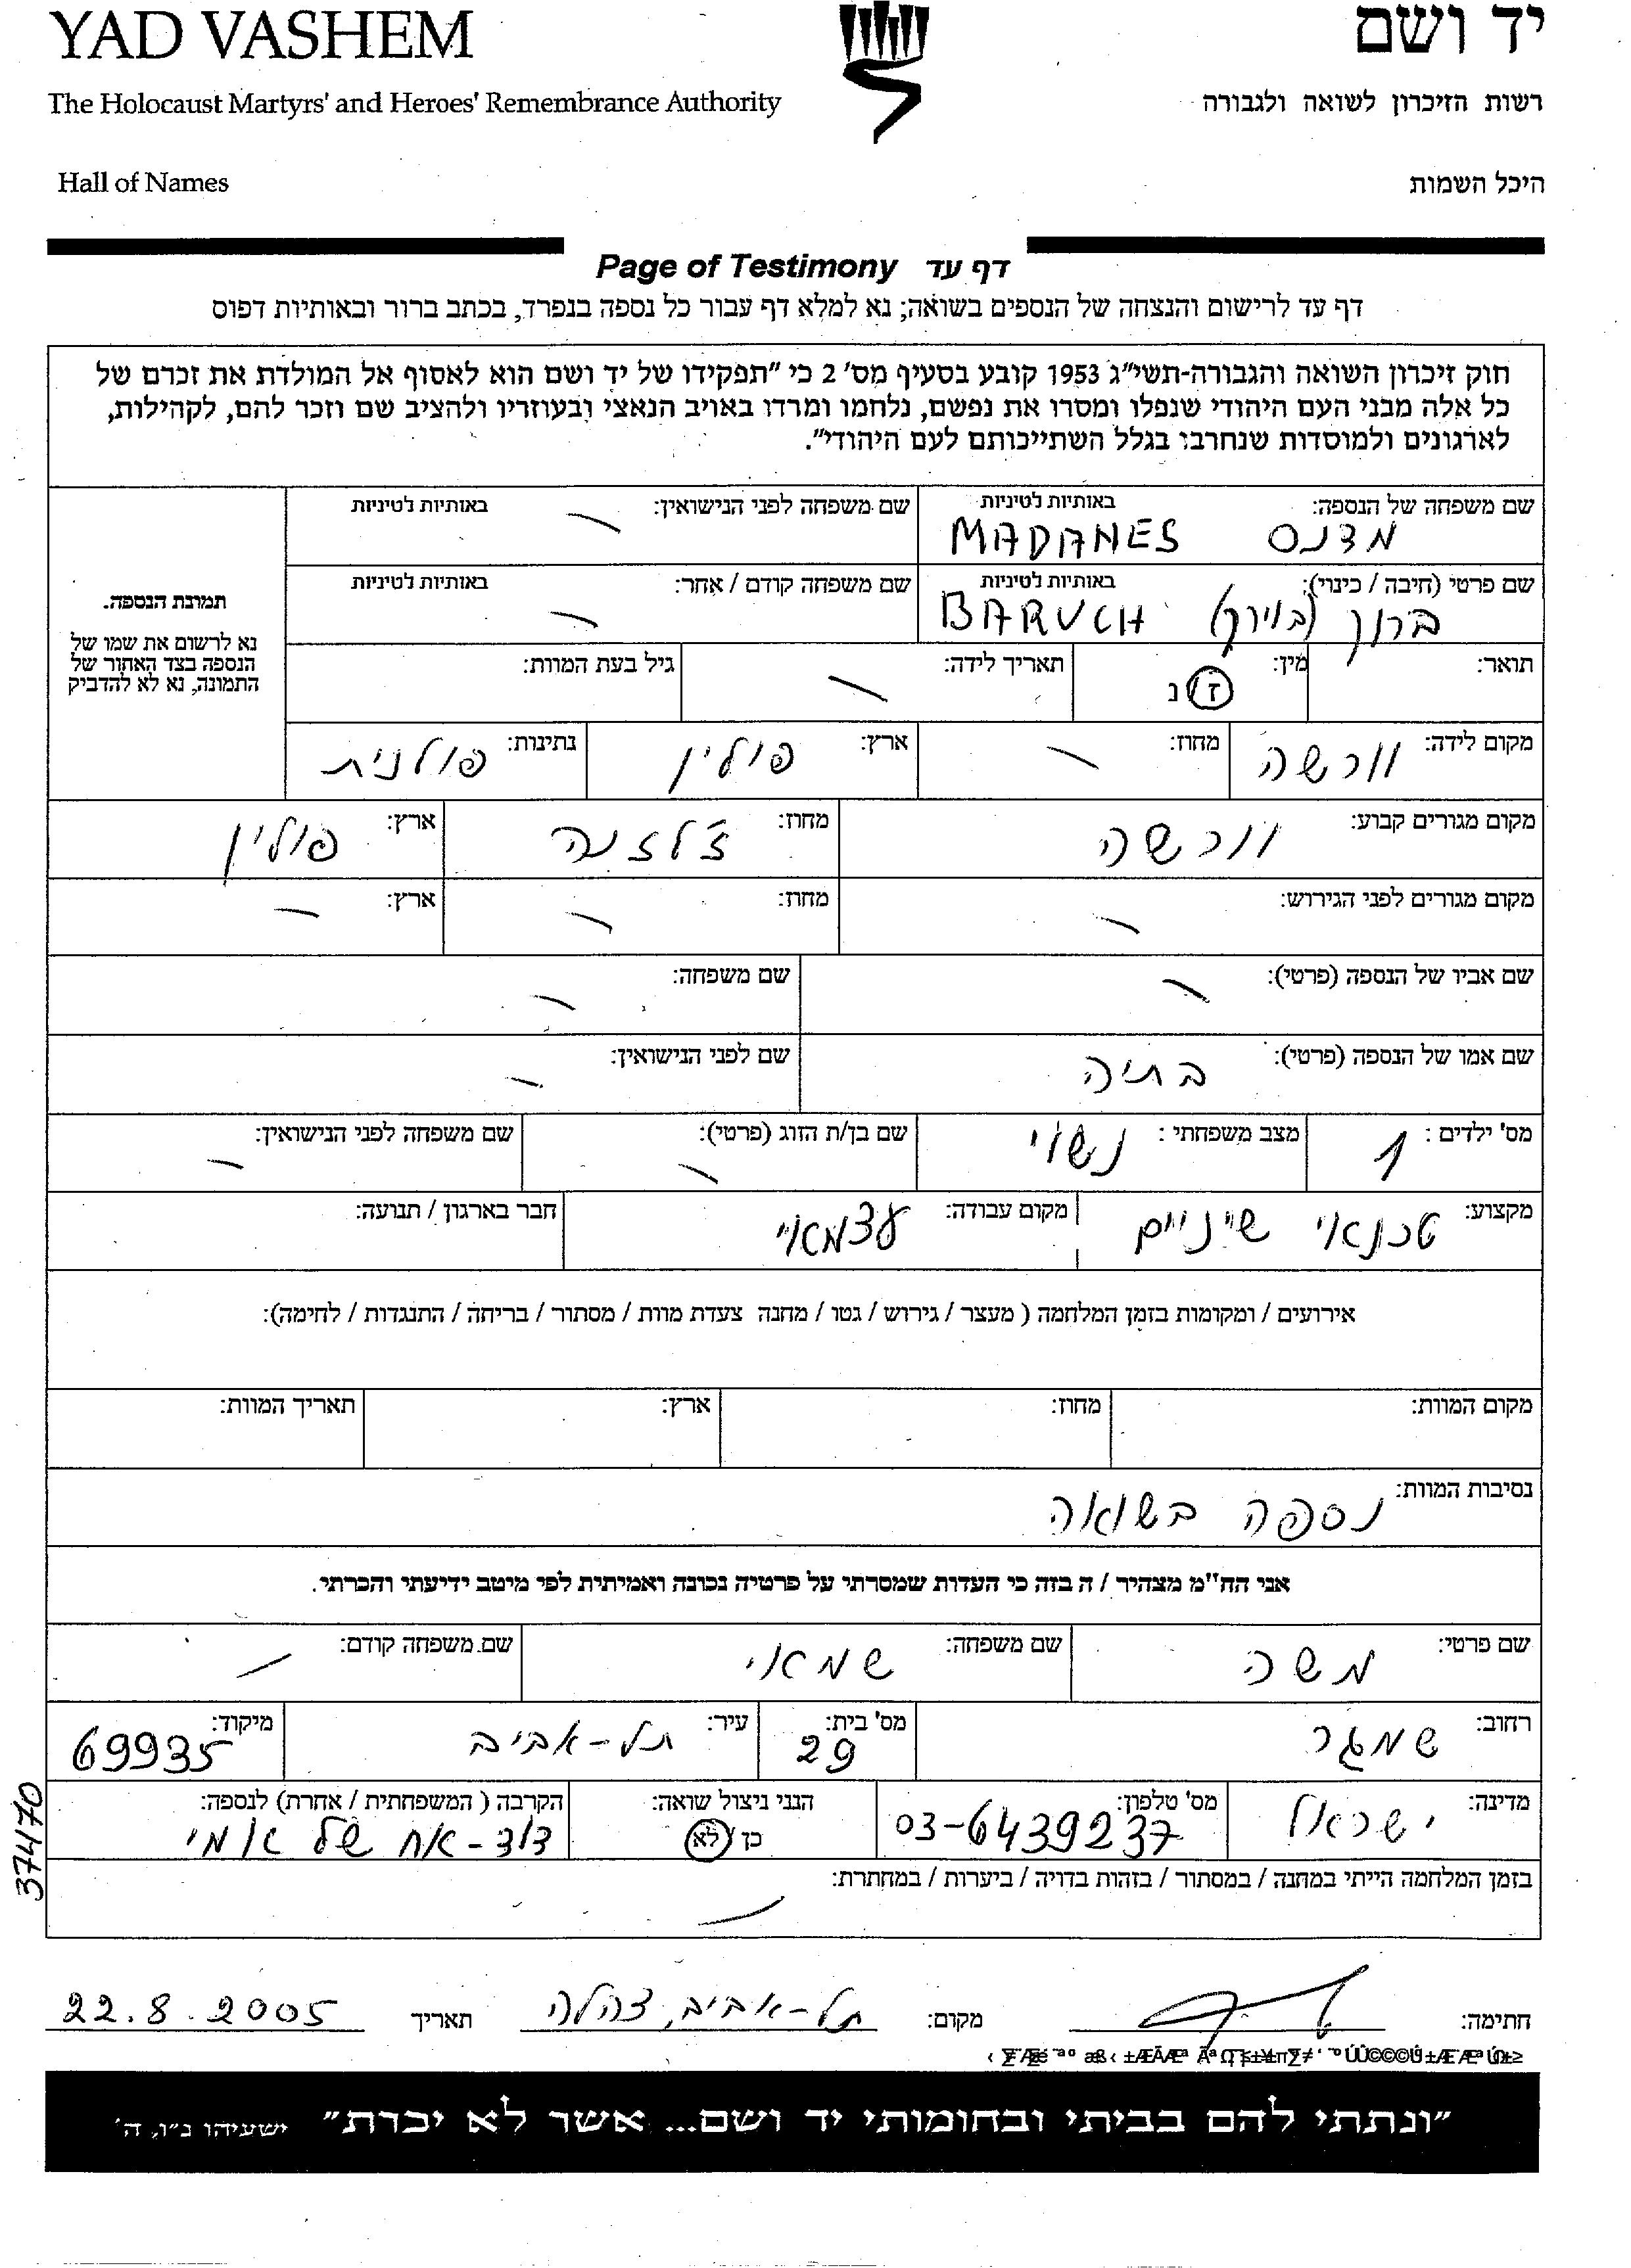 YAD VASHEM
יד ושם
The Holocaust Martyrs' and Heroes' Remembrance Authority
רשות הזיכרון לשואה ולגבורה
Hall of Names
היכל השמות
Page of Testimony דף עד
דף עד לרישום והנצחה של הנספים בשואה; נא למלא דף עבור כל נספה בנפרד, בכתב ברור ובאותיות דפוס
חוק זיכרון השואה והגבורה-תשי״ג 1953 קובע בסעיף מס' 2 כי ״תפקידו של יד ושם הוא לאסוף אל המולדת את זכרם של
כל אלה מבני העם היהודי שנפלו ומסרו את נפשם, נלחמו ומרדו באויב הנאצי ובעוזריו ולהציב שם וזכר להם, לקהילות,
לארגונים ולמוסדות שנחרבו בגלל השתייכותם לעם היהודי״.
שם משפחה של הנספה: באותיות לטיניות שם משפחה לפני הנישואין: באותיות לטיניות
מדנס MADANES
שם פרטי (חיבה / כינוי): באותיות לטיניות שם משפחה קודם / אחר: באותיות לטיניות
ברוך (בוירך) BARUCH
תמונת הנספה.
נא לרשום את שמו של
הנספה בצד האחור של
התמונה, נא לא להדביק
תואר: מין: ז / נ תאריך לידה: גיל בעת המוות:
מקום לידה: וורשה מחוז: ארץ: פולין נתינות: פולנית
מקום מגורים קבוע: וורשה מחוז: ז'לזנה ארץ: פולין
מקום מגורים לפני הגירוש: מחוז: ארץ:
שם אביו של הנספה (פרטי): שם משפחה:
שם אמו של הנספה (פרטי): בתיה שם לפני הנישואין:
מס' ילדים: 1 מצב משפחתי: נשוי שם בן/ת הזוג (פרטי): שם משפחה לפני הנישואין:
מקצוע: טכנאי שיניים מקום עבודה: עצמאי חבר בארגון / תנועה:
אירועים / ומקומות בזמן המלחמה ( מעצר / גירוש / גטו / מחנה צעדת מוות / מסתור / בריחה / התנגדות / לחימה):
מקום המוות: מחוז: ארץ: תאריך המוות:
נסיבות המוות: נספה בשואה
אני הח״מ מצהיר / ה בזה כי העדות שמסרתי על פרטיה נכונה ואמיתית לפי מיטב ידיעתי והכרתי.
שם פרטי: משה שם משפחה: שמאי שם משפחה קודם:
רחוב: שמגר מס' בית: 29 עיר: תל-אביב מיקוד: 69935
מדינה: ישראל מס' טלפון: 03-6439237 הנני ניצול שואה: כן / לא הקרבה ( המשפחתית / אחרת) לנספה: דוד-אח של אמי
37470
בזמן המלחמה הייתי במחנה / במסתור / בזהות בדויה / ביערות / במחתרת:
חתימה: מקום: תל-אביב, צהלה תאריך 22.8.2005
״ונתתי להם בביתי ובחומותי יד ושם... אשר לא יכרת״ ישעיהו נ״ו, ה'